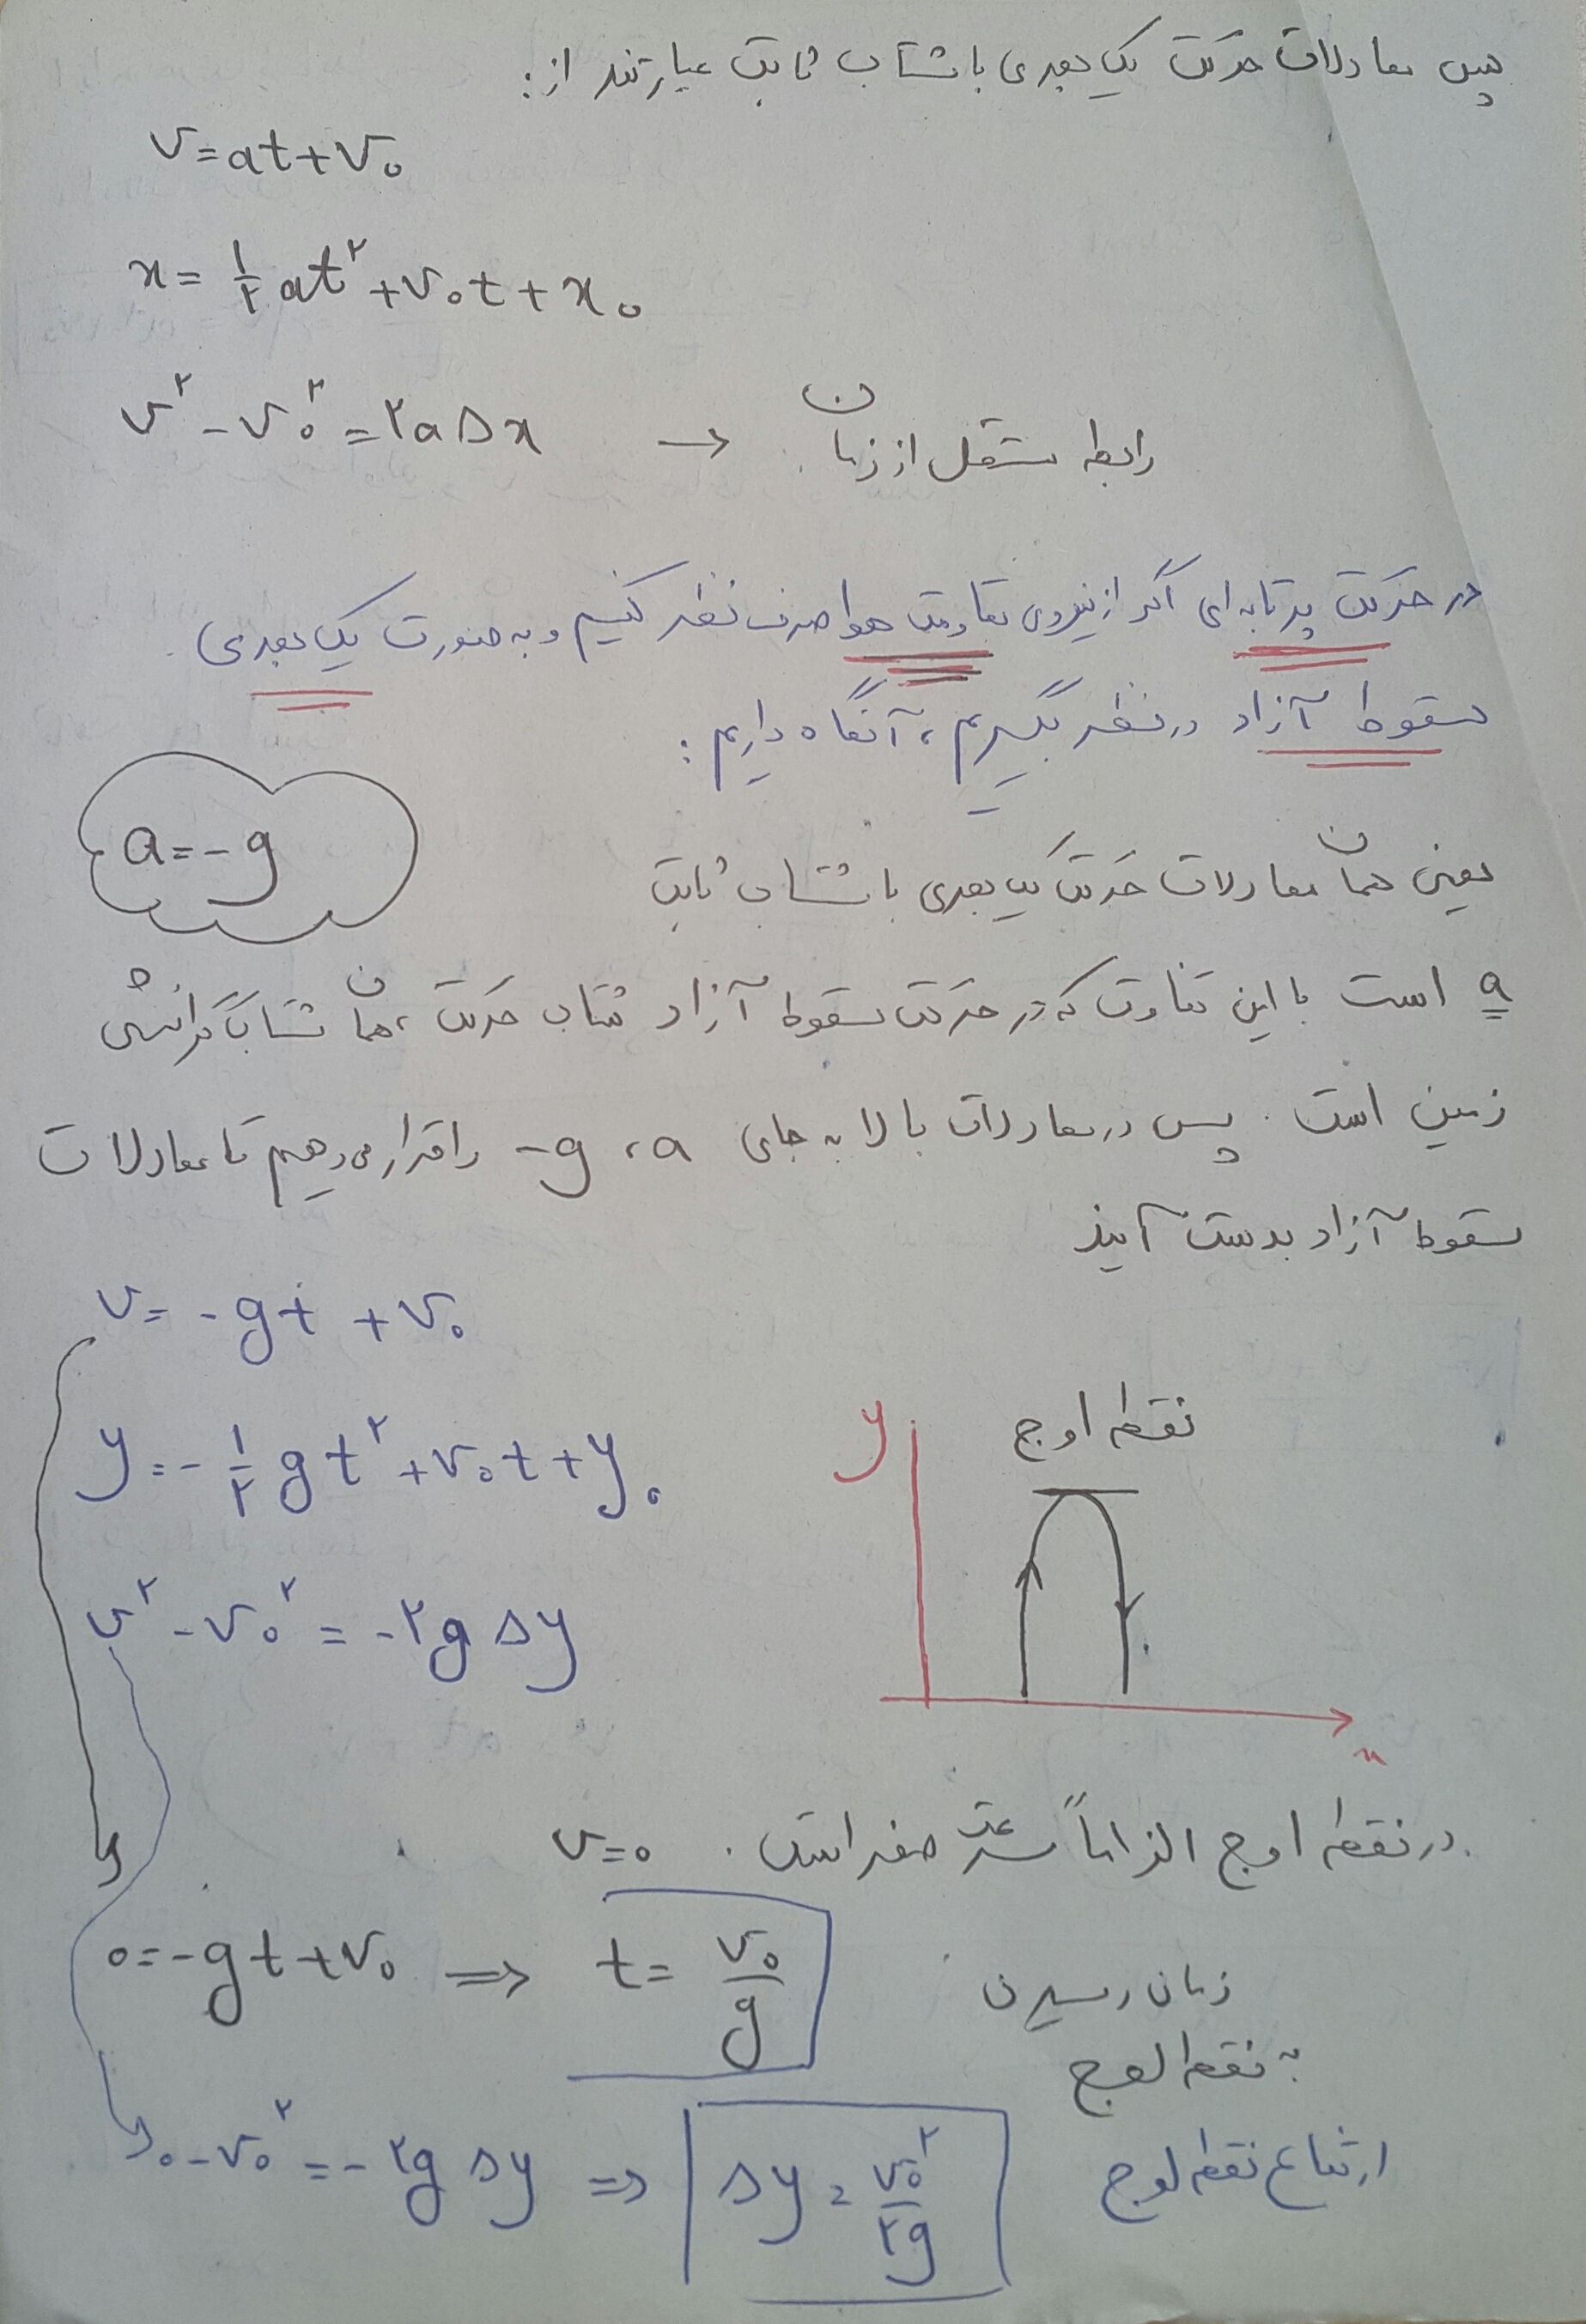 پس معادلات حرکت یک بعدی با شتاب ثابت عبارتند از:
v=at+v₀
x= ۱/۲ at²+v₀t+x₀
v²-v₀²=۲aΔx → رابطه مستقل از زمان
در حرکت پرتابه ای اگر از نیروی مقاومت هوا صرف نظر کنیم و به صورت یک بعدی
سقوط آزاد در نظر بگیریم، آنگاه داریم:
a=-g
یعنی همان معادلات حرکت یک بعدی با شتاب ثابت
a است با این تفاوت که در حرکت سقوط آزاد شتاب حرکت، همان شتاب گرانشی
زمین است. پس در معادلات بالا به جای a، -g را قرار می دهیم تا معادلات
سقوط آزاد بدست آیند
v= -gt +v₀
y=-۱/۲ gt²+v₀t+y₀
v²-v₀²=-۲gΔy
y
نقطه اوج
x
در نقطه اوج الزاماً سرعت صفر است. v=۰
۰=-gt+v₀ ⇒ t= v₀/g زمان رسیدن
به نقطه اوج
۰-v₀²=-۲gΔy ⇒ Δy= v₀²/۲g ارتفاع نقطه اوج